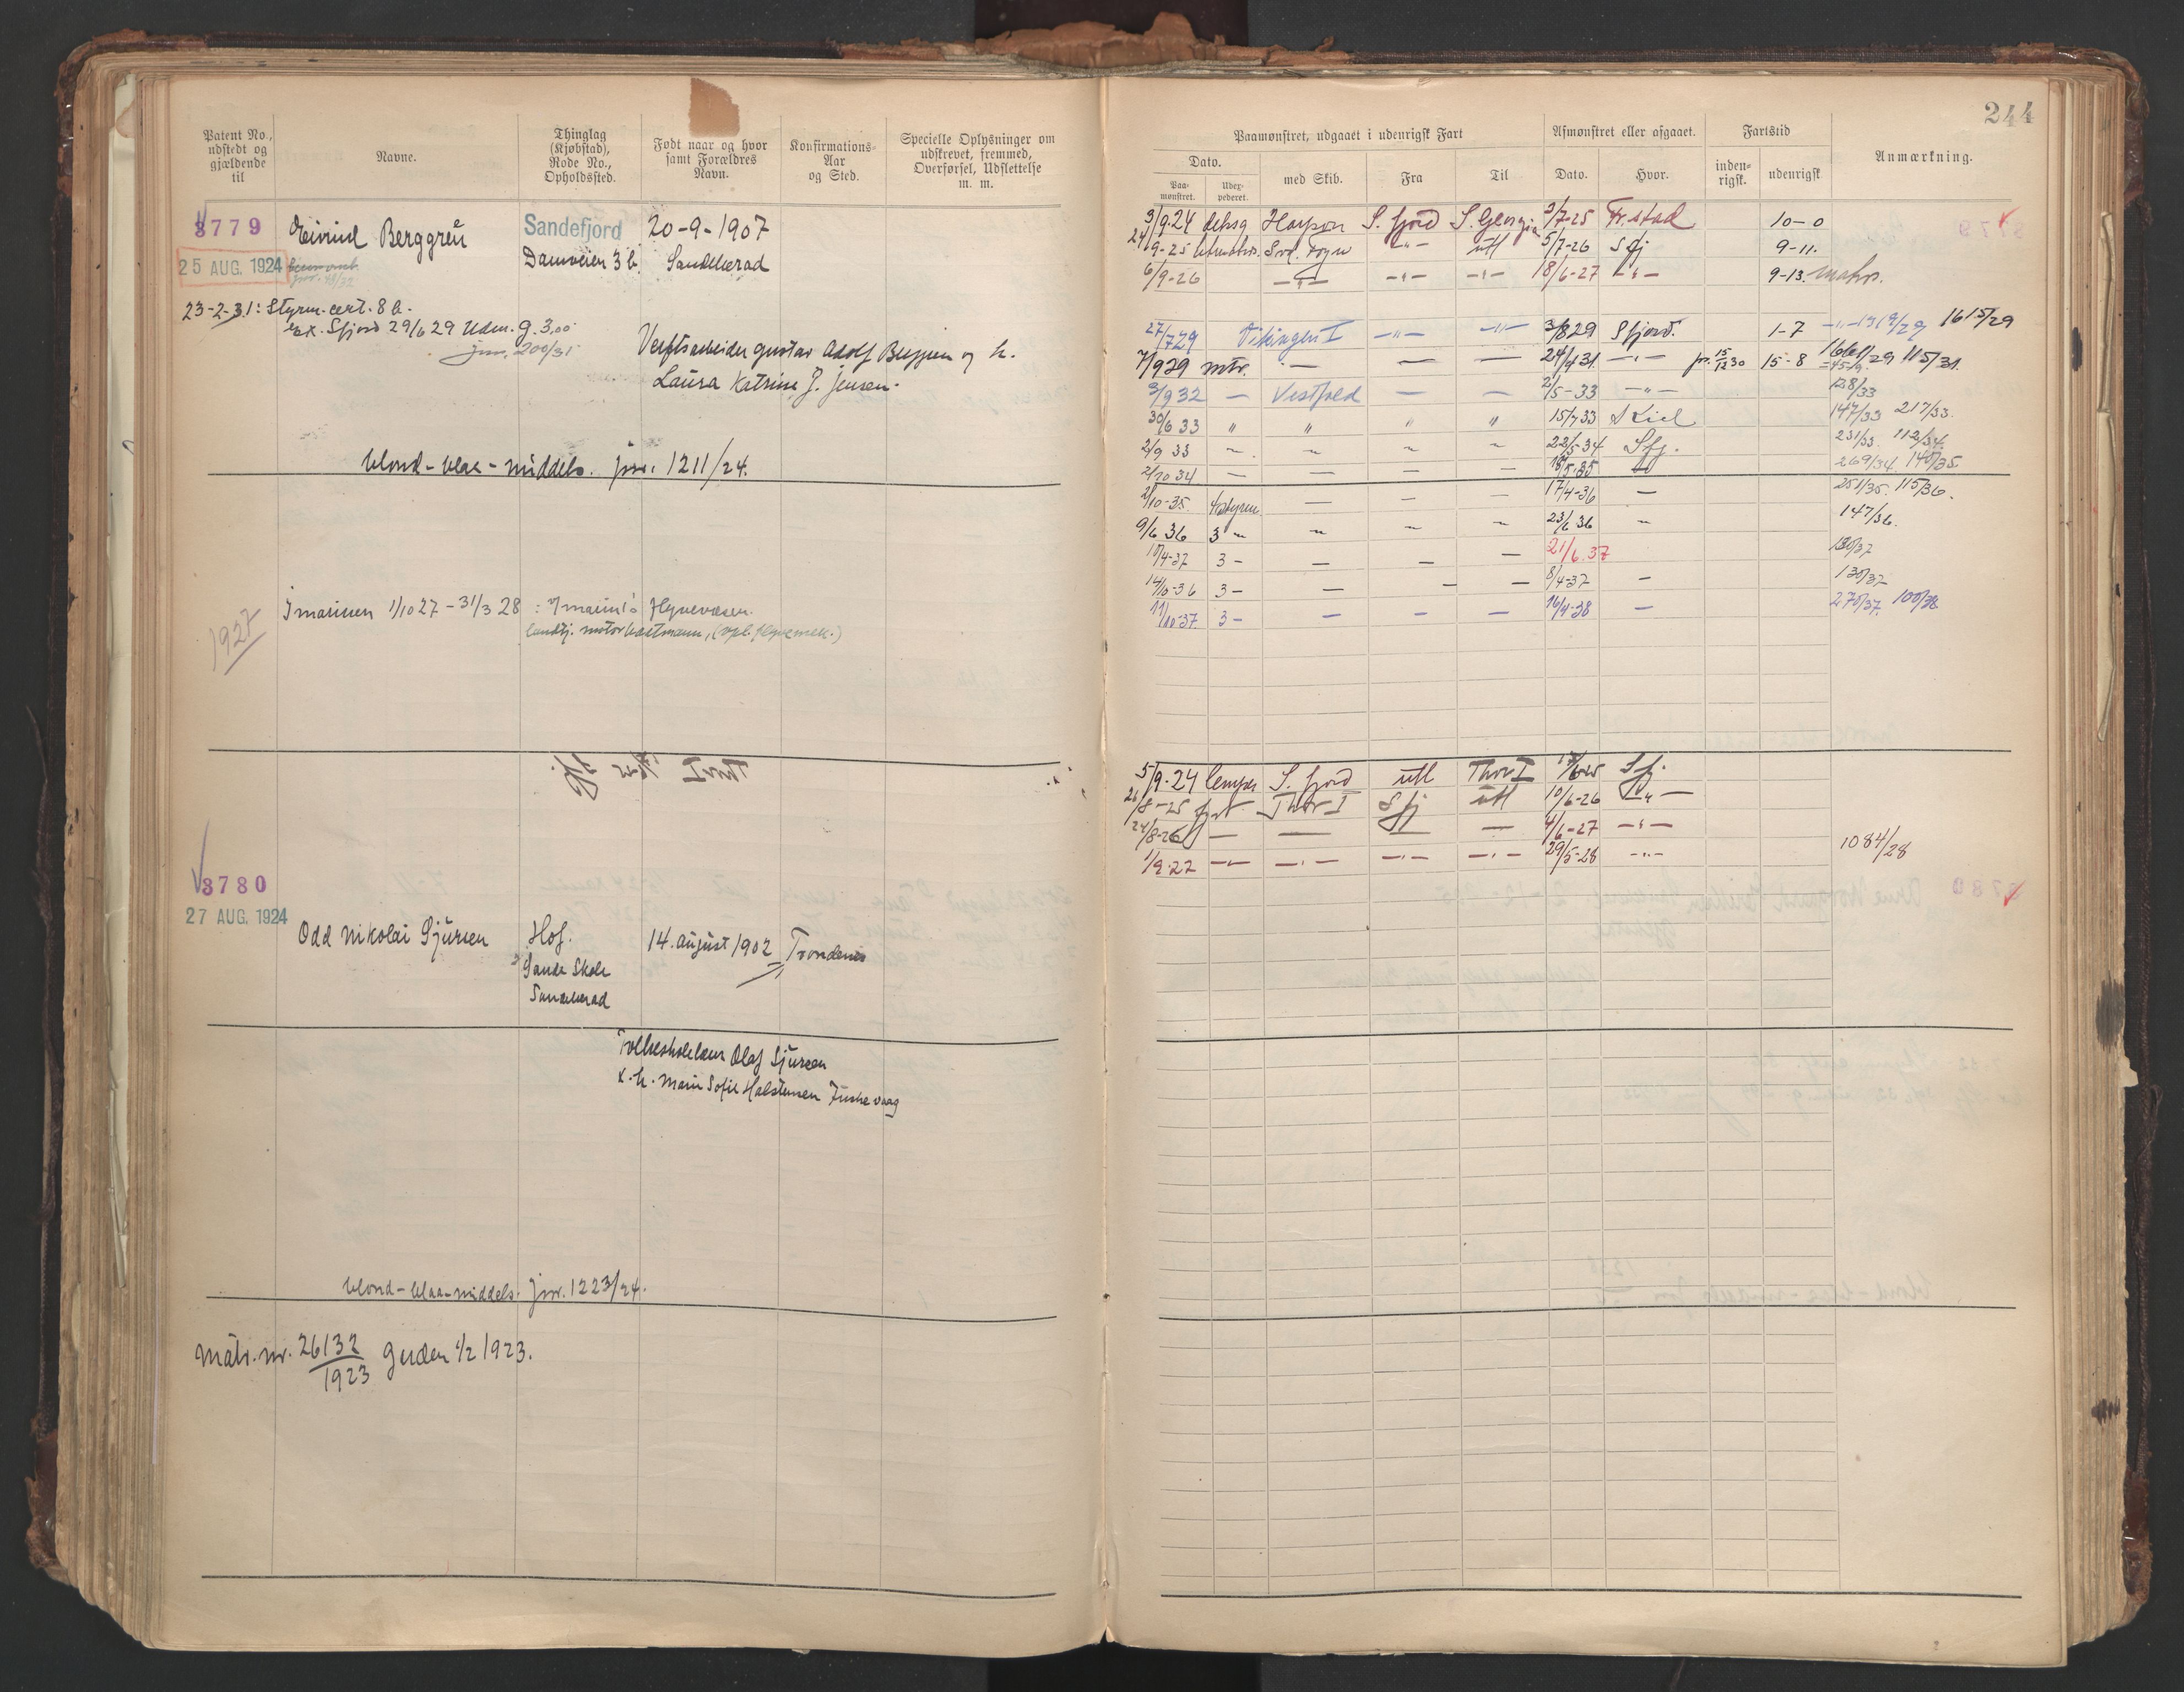 244
Patent No., udstedt og gjældende til
Navne.
Thinglag (Kjøbstad), Rode No., Opholdssted.
Født naar og hvor samt Forældres Navn.
Konfirmations-Aar og Sted.
Specielle Oplysninger om udskrevet, fremmed, Overførsel, Udslettelse m. m.
3779 Eivind Berggrèn Sandefjord 20-9-1907
25 AUG. 1924 Damveien 3 b. Sandeherad
23-2-31: Styrm. cert. 8 b.
ex. Sfjord 29/6 29 Uden. g. 3,00
jnr. 200/31
Verftsarbeider Gustav Adolf Berggren og h.
Laura Katrine J. Jensen.
blond - blaa - middels. jnr. 1211/24.
1927
I marinen 1/10 27 - 31/3 28 :
Thor I
3780
27 AUG. 1924
Odd Nikolai Sjursen Hof. 14. august 1902 Trondenes
Sande Skole
Sandeherad
Folkeskolelærer Olaf Sjursen
x. h. Marie Sofie Halstensen Fuskevaag
blond - blaa - middels. jnr. 1223/24.
Matr. nr. 26132/1923 Gjelden 1/2 1923.
Paamønstret, udgaaet i udenrigsk Fart
Afmønstret eller afgaaet.
Fartstid
Anmærkning.
Dato.
Paa-mønstret.
Udex-pederet.
med Skib.
Fra
Til
Dato.
Hvor.
inden-rigsk.
udenrigsk
3/9-24 deksg Harpon S. fjord S. Georgia 3/7-25 Fr.stad 10-0
24/9-25 Svd. Foyn -"- utl 5/7-26 S fj 9-11.
6/9-26 -"- -"- -"- 18/6-27 -"- 9-13. matr.
27/7 29 Vikingen I -"- -"- 3/8 29 Sfjord. 1-7 1615/29
7/9 29 mtr. - - - 24/4 31 -"- 15/12 30 15-8 1661/29 115/31.
3/9 32 - Vestfold - - 2/5-33 -"- 138/33
30/6 33 " " " " 15/7 33 Kiel 147/33 217/33.
2/9 33 22/5-34 Sfj. 231/33. 112/34.
2/10 34 - - - - 18/5-35 269/34. 140/35.
2/10-35. styrm - - - 17/4-36 - 251/35. 115/36.
9/6 36 3 - 23/6 36 147/36.
10/4-37 3 - - - - 21/6. 37 130/37
14/10-36 3 - - - - 8/4-37 - 130/37.
11/10-37. 3 - - - - 16/4-38 - 270/37. 100/38
5/9-24 S. fjord utl Thor I 6-25 S fj.
26/8-25 fyrb. Thor I S fj utl 10/6-26 -"-
24/8-26 - - - - 4/6-27 -"-
1/9-27 -"- -"- -"- -"- 29/5-28 -"- 1084/28